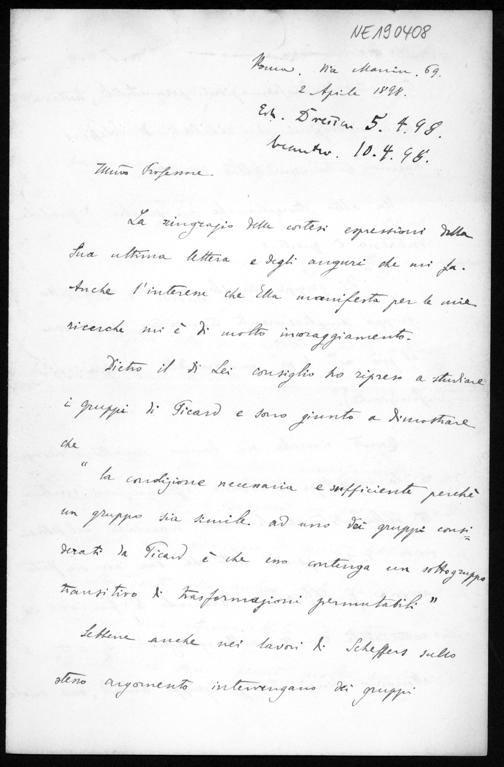 NE190408
Roma. Via Marrin. 69.
2 Aprile 1898.
Erh. Dresden 5.4.98.
beantw. 10.4.98.
Illmo Professore.
La ringrazio delle cortesi espressioni della
Sua ultima lettera e degli auguri che mi fa.
Anche l'interesse che Ella manifesta per le mie
ricerche mi è di molto incoraggiamento.
Dietro il di Lei consiglio ho ripreso a studiare
i gruppi di Picard e sono giunto a dimostrare
che
" la condizione necessaria e sufficiente perchè
un gruppo sia simile ad uno dei gruppi consi-
derati da Picard è che esso contenga un sottogruppo
transitivo di trasformazioni permutabili "
Sebbene anche nei lavori di Scheffers sullo
stesso argomento intervengano dei gruppi